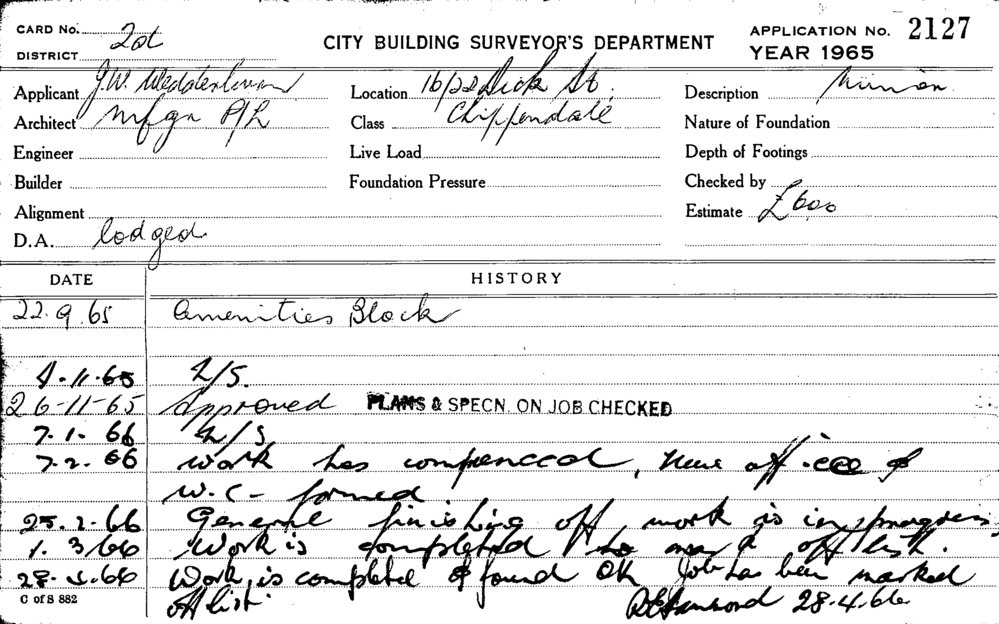 CARD No. 2nd CITY BUILDING SURVEYOR'S DEPARTMENT APPLICATION No. 2127
DISTRICT YEAR 1965
Applicant J.W. Location 16/22 Dick St. Description
Architect Mfgn P/L Class Chippendale Nature of Foundation
Engineer Live Load Depth of Footings
Builder Foundation Pressure Checked by
Alignment Estimate £600
D.A. lodged
DATE HISTORY
22.9.65 Amenities Block
4.11.65 L/S.
26-11-65 Approved PLANS & SPECN. ON JOB CHECKED
7.1.66 L/S
7.2.66 work has commenced, New office &
W.C - formed
25.2.66 General finishing off work is in progress
1.3.66 Work is completed to mark off list.
28.4.66 Work is completed & found OK Job has been marked
off list. 28.4.66
C of S 882